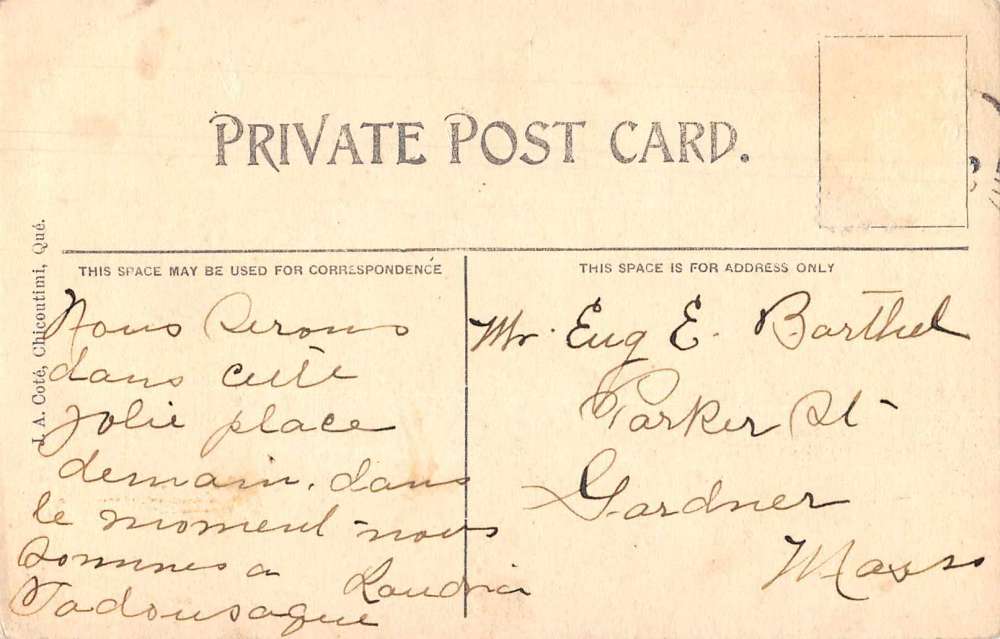 PRIVATE POST CARD.
J. A. Coté, Chicoutimi, Qué.
THIS SPACE MAY BE USED FOR CORRESPONDENCE
Nous Serons
dans cette
Jolie place
demain. dans
le moment nous
Sommes a
Tadousaque
THIS SPACE IS FOR ADDRESS ONLY
Mr. Eug E. Barthel
Parker St
Gardner
Mass